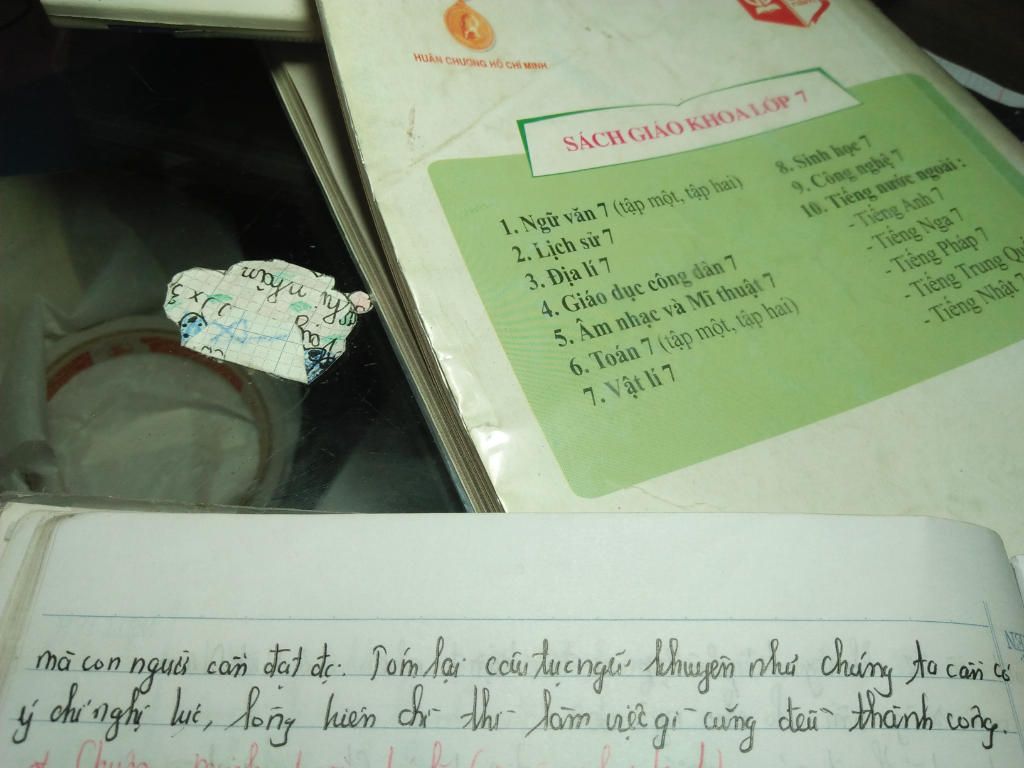 HUÂN CHƯƠNG HỒ CHÍ MINH
SÁCH GIÁO KHOA LỚP 7
1. Ngữ văn 7 (tập một, tập hai)
2. Lịch sử 7
3. Địa lí 7
4. Giáo dục công dân 7
5. Âm nhạc và Mĩ thuật 7
6. Toán 7 (tập một, tập hai)
7. Vật lí 7
8. Sinh học 7
9. Công nghệ 7
10. Tiếng nước ngoài :
- Tiếng Anh 7
- Tiếng Nga 7
- Tiếng Pháp 7
- Tiếng Trung
- Tiếng Nhật 7
nhân
mà con người cần đạt đc. Tóm lại câu tục ngữ khuyên như chúng ta cần có
ý chí nghị lực, lòng kiên chì thì làm việc gì cũng đều thành công.